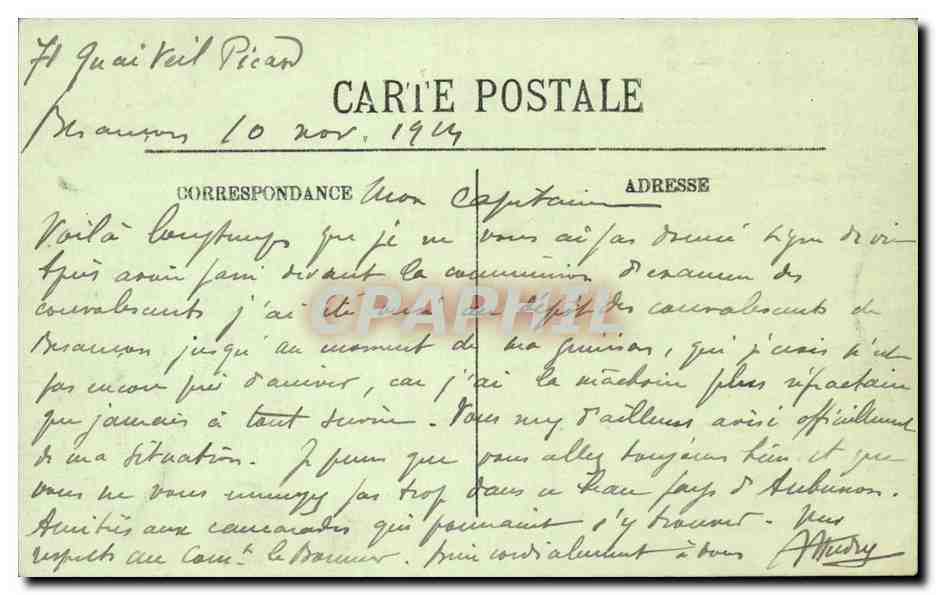 71 Quai Veil Picard
CARTE POSTALE
Besançon 10 nov. 1914
CORRESPONDANCE
ADRESSE
Mon Capitaine
Voilà longtemps que je ne vous ai pas donné signe de vie
Après avoir passé devant la commission d'examen des
convalescents j'ai été versé au dépôt des convalescents de
Besançon jusqu'au moment de ma guérison, qui je crois n'est
pas encore près d'arriver, car j'ai la mâchoire plus réfractaire
que jamais à tout service. Vous d'ailleurs avisé officiellement
de ma situation. Je pense que vous allez toujours bien et que
vous ne vous ennuyez pas trop dans ce beau pays d'
Amitiés aux camarades qui pourraient s'y trouver. Mes
respects au Comt. le Bonnier. bien cordialement à vous
CPAPHIL